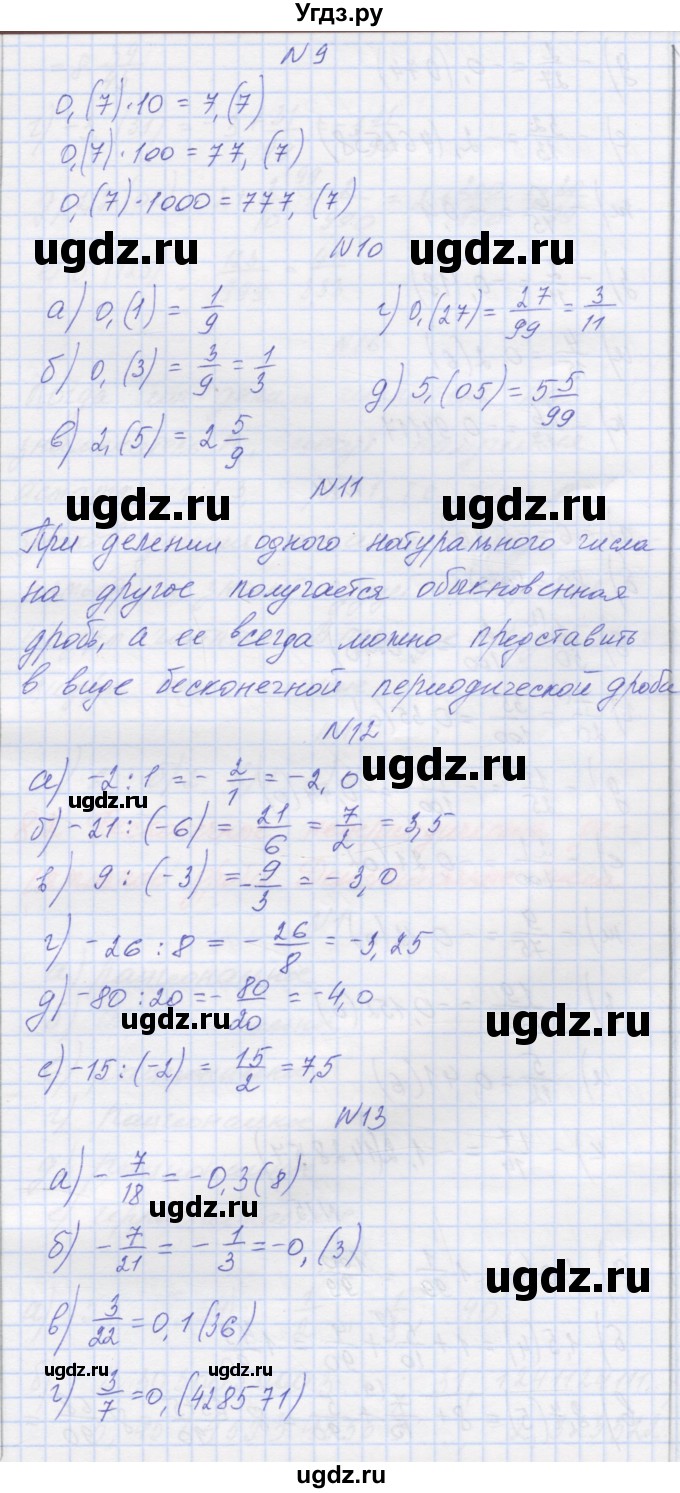 Угдз.ру
N9
0,(7)·10 = 7,(7)
0,(7)·100 = 77,(7)
0,(7)·1000 = 777,(7)
ugdz.ru
N10
ugdz.ru
а) 0,(1) = 1/9
г) 0,(27) = 27/99 = 3/11
б) 0,(3) = 3/9 = 1/3
д) 5,(05) = 5 5/99
в) 2,(5) = 2 5/9
N11
ugdz.ru
ugdz.ru
При делении одного натурального числа
на другое получается обыкновенная
дробь, а ее всегда можно представить
в виде бесконечной периодической дроби
N12
ugdz.ru
а) -2 : 1 = - 2/1 = -2,0
ugdz.ru
б) -21 : (-6) = 21/6 = 7/2 = 3,5
в) 9 : (-3) = - 9/3 = -3,0
г) -26 : 8 = - 26/8 = -3,25
д) -80 : 20 = - 80/20 = -4,0
ugdz.ru
ugdz.ru
е) -15 : (-2) = 15/2 = 7,5
N13
а) - 7/18 = -0,3(8)
ugdz.ru
б) - 7/21 = - 1/3 = -0,(3)
ugdz.ru
в) 3/22 = 0,1(36)
ugdz.ru
ugdz.ru
г) 3/7 = 0,(428571)
ugdz.ru